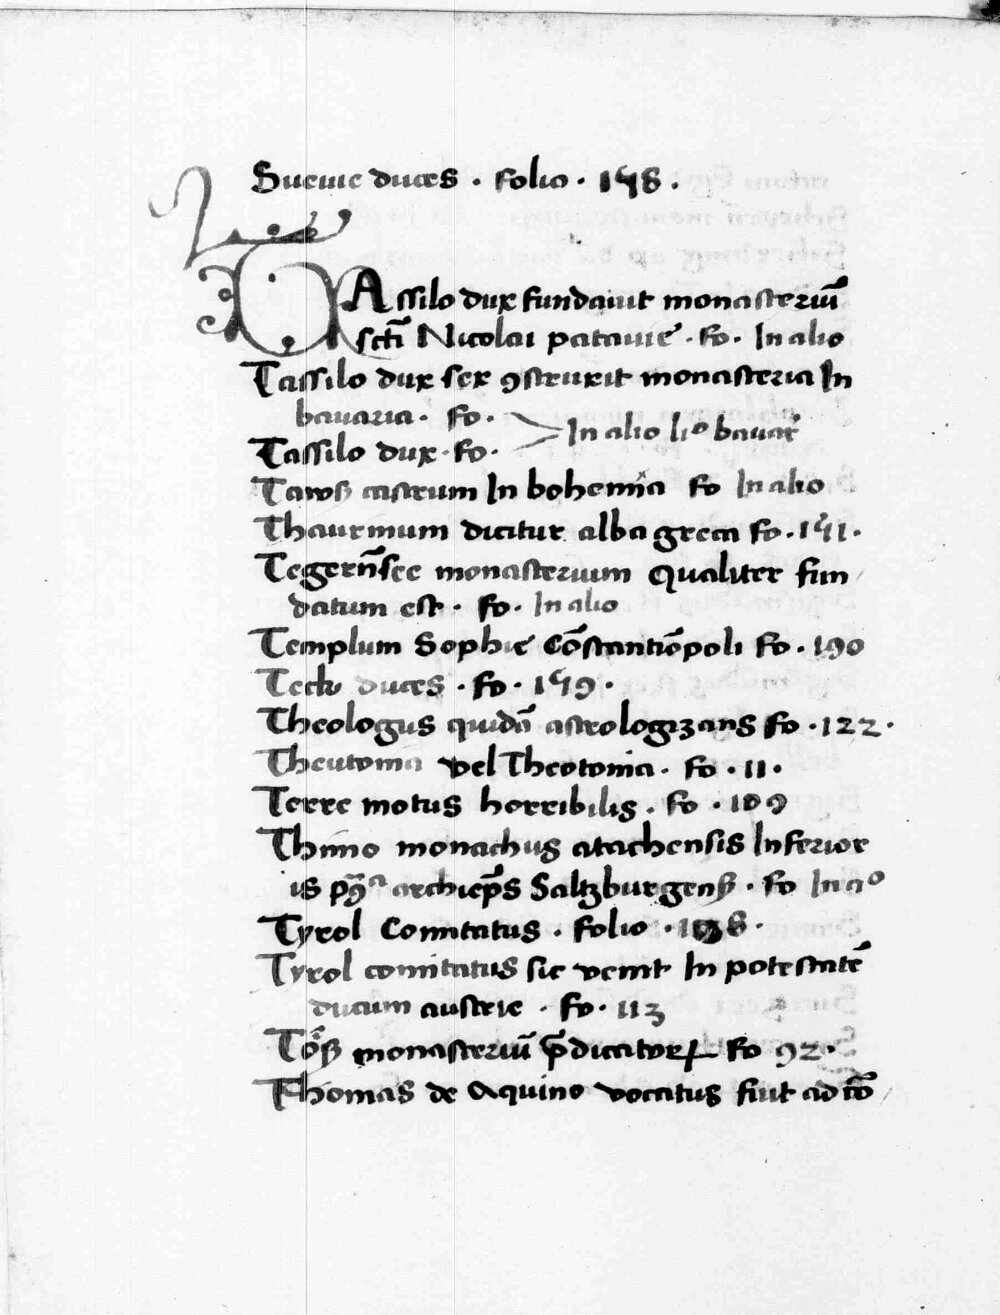 Sueuie duces . folio . 158 .
TAssilo dux fundauit monasteriū
sct̄i Nicolai patauie . fo . In alio
Tassilo dux sex ꝯstruxit monasteria In
bauaria . fo .
In alio li° bauar̄
Tassilo dux . fo .
castrum In bohemia fo In alio
Thaurinum dicitur alba greca fo . 151 .
Tegern̄see monasterium Qualiter fun
datum est . fo . In alio
Templum Sophie Cōstantiōpoli fo . 190
Teck duces . fo . 159 .
Theologus quidā astrologizans fo . 122 .
Theutonia vel Theotonia . fo . 11 .
Terre motus horribilis . fo . 109
Thimo monachus altachensis Inferior
is archiep̄s Saltzburgenß . fo In a°
Tyrol Comitatus . folio . 138 .
Tyrol comitatus sic venit In potestatē
ducum austrie . fo . 113
monasteriū p̄dicatorꝝ fo 92 .
Thomas de Aquino vocatus fuit ad cō